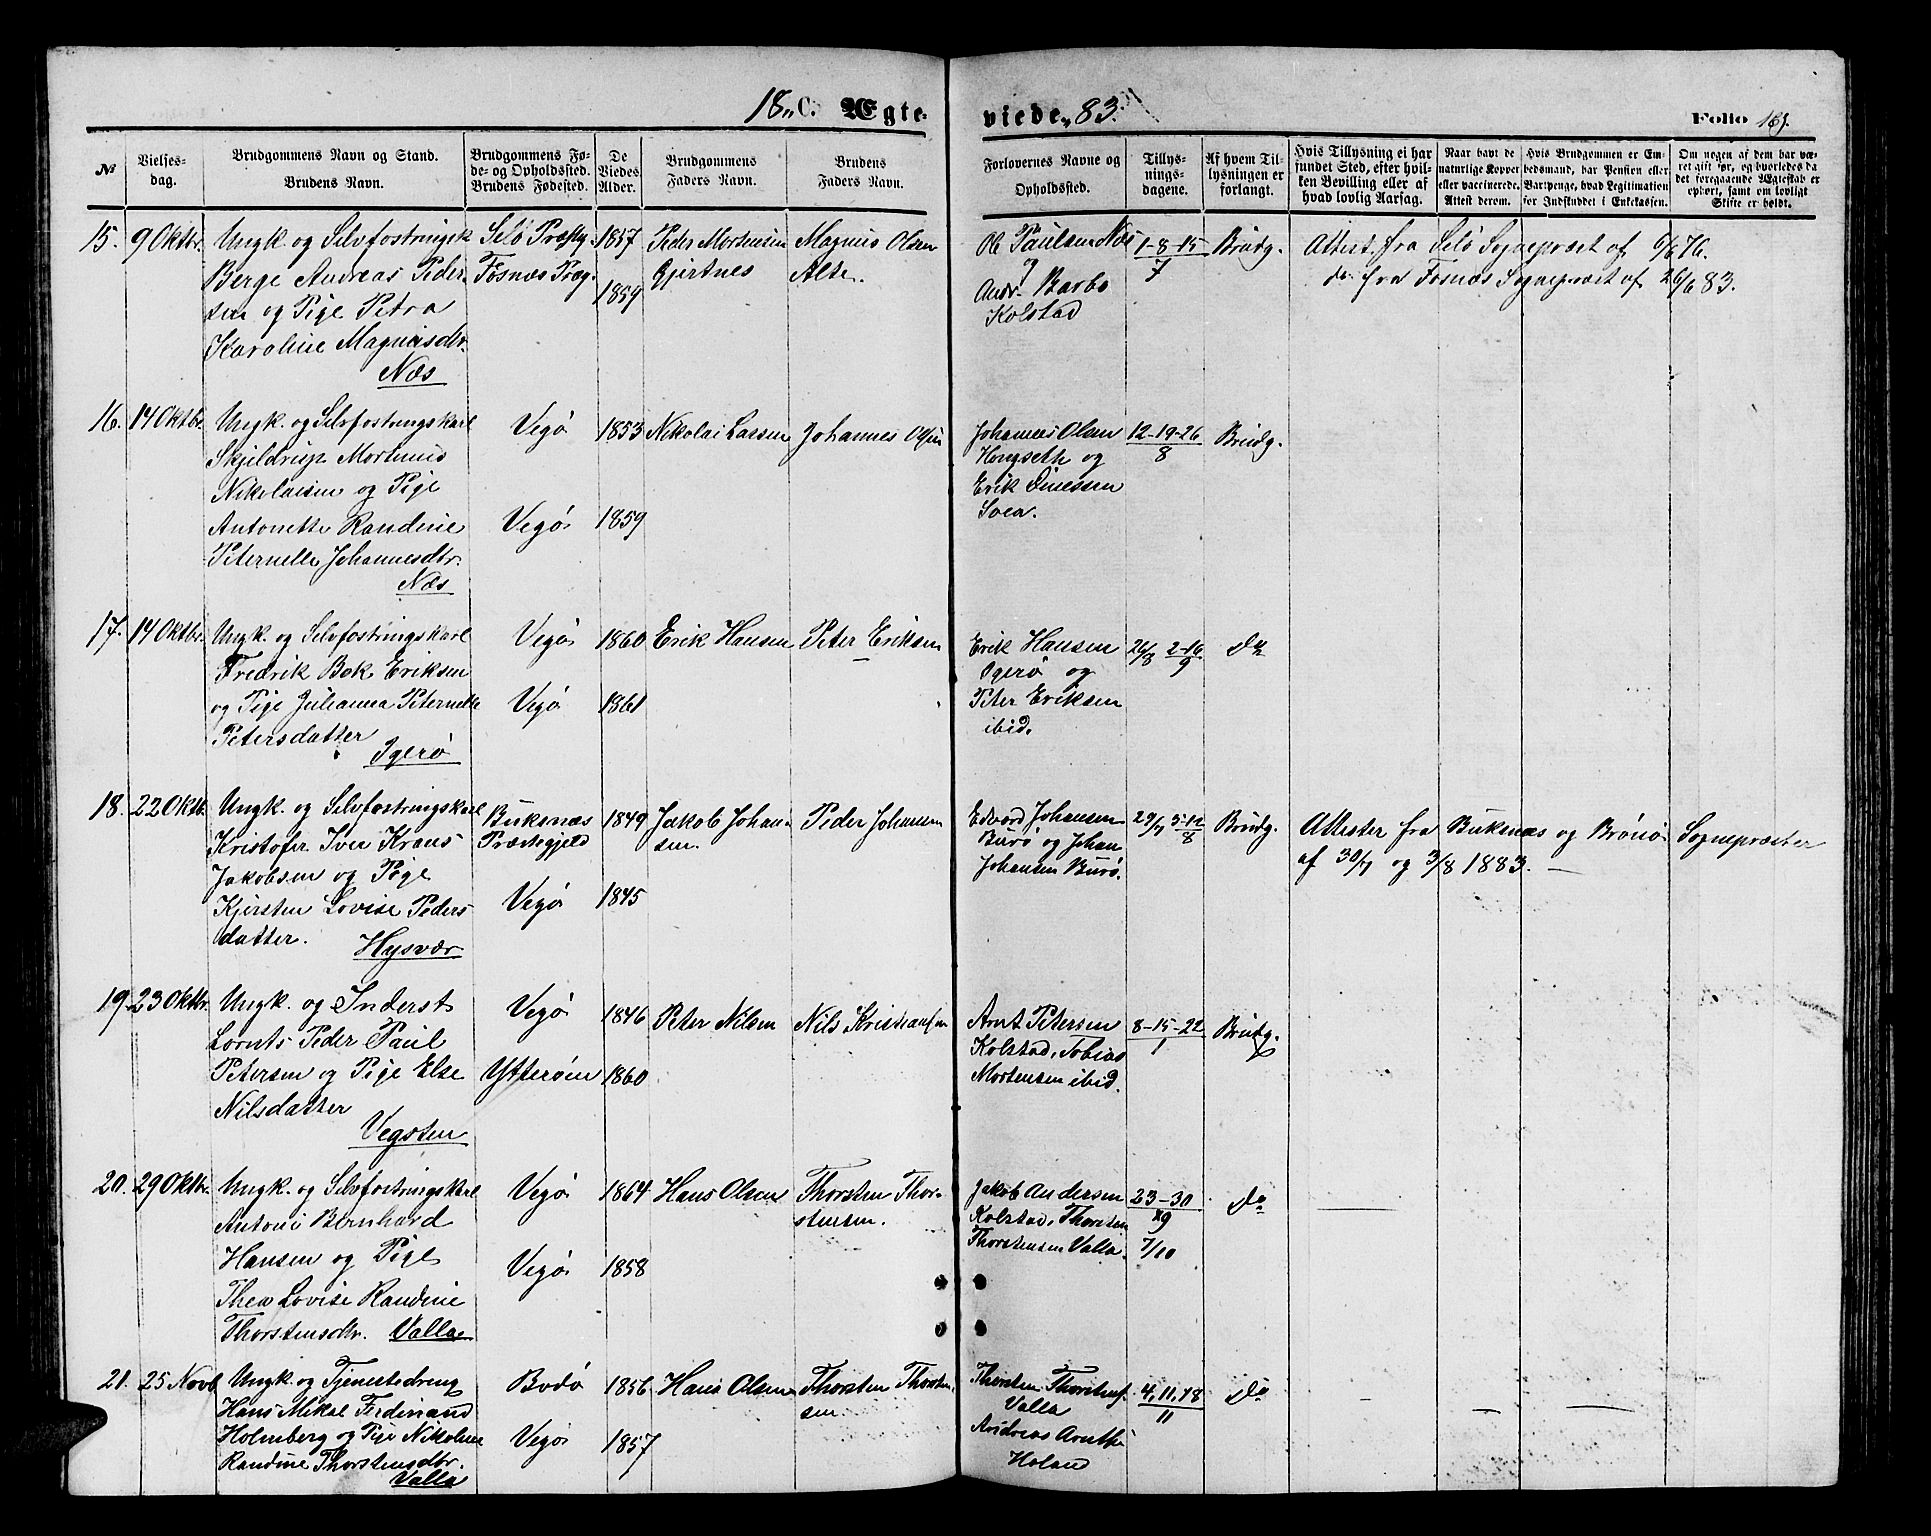 18 C. Ægte-
viede. 83.
Folio 167.
№
Vielses-
dag.
Brudgommens Navn og Stand.
Brudens Navn.
Brudgommens Fø-
de- og Opholdssted.
Brudens Fødested.
De
Viedes
Alder.
Brudgommens
Faders Navn.
Brudens
Faders Navn.
Forlovernes Navne og
Opholdssted.
Tillys-
nings-
dagene.
Af hvem Til-
lysningen er
forlangt.
Hvis Tillysning ei har
fundet Sted, efter hvil-
ken Bevilling eller af
hvad lovlig Aarsag.
Naar havt de
naturlige Kopper
eller vaccinerede.
Attest derom.
Hvis Brudgommen er Em-
bedsmand, har Pension eller
Vartpenge, hvad Legitimation
for Indskuddet i Enkekassen.
Om nogen af dem har væ-
ret gift før, og hvorledes da
det foregaaende Ægteskab er
ophørt, samt om lovligt
Skifte er holdt.
15. 9 Oktbr.
Ungk. og Selvfostringsk
Berge Andreas Peder-
sen og Pige Petra
Karoline Magnusdtr.
Næs
Selø Præstg.
Fosnæs Præg.
1857
1859
Peder Mortensen
Gjertnes
Magnus Olsen
Alte.
Ole Paulsen Næs
og
Andr. Barbo
Kolstad
1-8-15
7
Brudg.
Attest. fra Selø Sognepræst af 6/6 76.
do. fra Fosnæs Sognepræst af 26/6 83.
16. 14 Oktbr.
Ungk. og Selvfostringskarl
Skjeldrup Mortinus
Nikolaisen og Pige
Antonette Randine
Peternelle Johannesdtr.
Næs
Vegø
Vegø
1853
1859
Nikolai Larsen
Johannes Olsen
Johannes Olsen
Hongseth og
Erik Dinessen
Svea.
12-19-26
8
Brudg.
17. 14 Oktbr.
Ungk. og Selvfostringskarl
Fredrik Bok Eriksen
og Pige Julianna Peternelle
Petersdatter
Igerø
Vegø
Vegø
1860
1861
Erik Hansen
Peter Eriksen
Erik Hansen
Igerø og
Peter Eriksen
ibid.
26/8 2-16
9
do
18. 22 Oktb.
Ungk. og Selvfostringskarl
Kristofer Iver Kraus
Jakobsen og Pige
Kjersten Lovise Peders-
datter.
Hysvær
Buksnæs
Præstegjeld
Vegø
1849
1845
Jakob Johan-
sen.
Peder Johansen
Edvard Johansen
Burø og Johan
Johansen Burø.
29/7 5-12
8
Brudg.
Attester fra Buksnæs og Brønø Sognepræster
af 30/7 og 3/8 1883.
19. 23 Oktbr.
Ungk. og Inderst
Lornts Peder Paul
Petersen og Pige Else
Nilsdatter
Vegsten
Vegø
Ytterøen
1846
1860
Peter Nilsen
Nils Kristiansen
Arnt Petersen
Kolstad, Tobias
Mortensen ibid.
8-15-22
1
Brudg.
20. 29 Oktbr.
Ungk. og Selvfostringskarl
Antoni Bernhard
Hansen og Pige
Thea Lovise Randine
Thorstensdtr. Valla
Vegø
Vegø
1864
1858
Hans Olsen
Thorsten Thor-
stensen.
Jakob Andersen
Kolstad, Thorsten
Thorstensen Valla.
23-30
9
7/10
do
21. 25 Novb
Ungk. og Tjenestedreng
Hans Mikal Ferdinand
Holmberg og Pige Nikoline
Randine Thorstensdtr.
Valla
Bodø
Vegø
1856
1857
Hans Olsen
Thorsten Thorsten-
sen.
Thorsten Thorstens.
Valla
Andreas
Holand
4, 11, 18
11
do